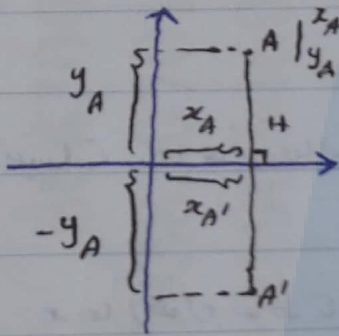 A | x_A
y_A
y_A
x_A
H
x_A'
-y_A
A'